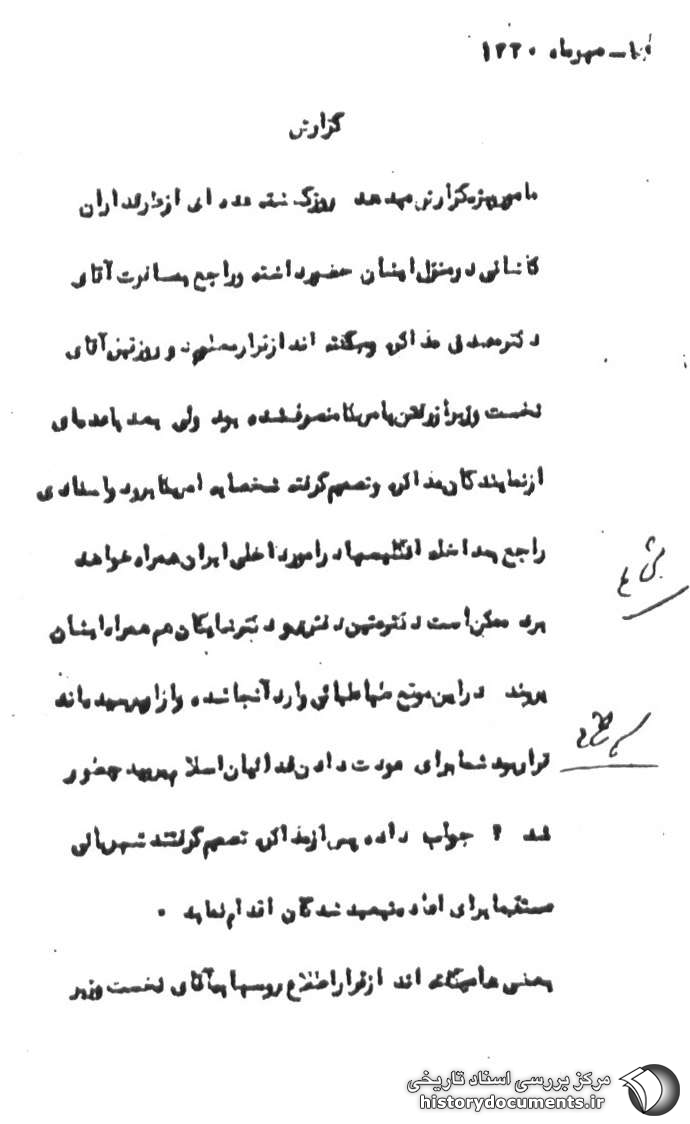 ۱۰ـ مهرماه ۱۳۳۰
گزارش
مامور ویژه گزارش میدهد روزگذشته عده ای از طرفداران
کاشانی در منزل ایشان حضور داشته و راجع بمسافرت آقای
دکتر مصدق مذاکره و میگفته اند از قرار معلوم دو روز قبل آقای
نخست وزیر از رفتن بامریکا منصرف شده بود ولی بعد با عده‌ای
از نمایندگان مذاکره و تصمیم گرفته شخصا به امریکا برود و اسنادی
راجع بمداخله انگلیسها در امور داخلی ایران همراه خواهد
برد ممکن است دکتر متین دفتری و دکتر شایگان هم همراه ایشان
بروند در این موقع طباطبائی وارد آنجا شده و از او پرسیده‌اند
قرار بود شما برای عودت دادن فدائیان اسلام بروید چطور
شد ؟ جواب داده پس از مذاکره تصمیم گرفتند شهربانی
مستقیما برای اعاده تبعید شدگان اقدام نماید ۰
بعضی ها میگفته اند از قرار اطلاع روسها بآقای نخست وزیر
مرکز بررسی اسناد تاریخی
historydocuments.ir